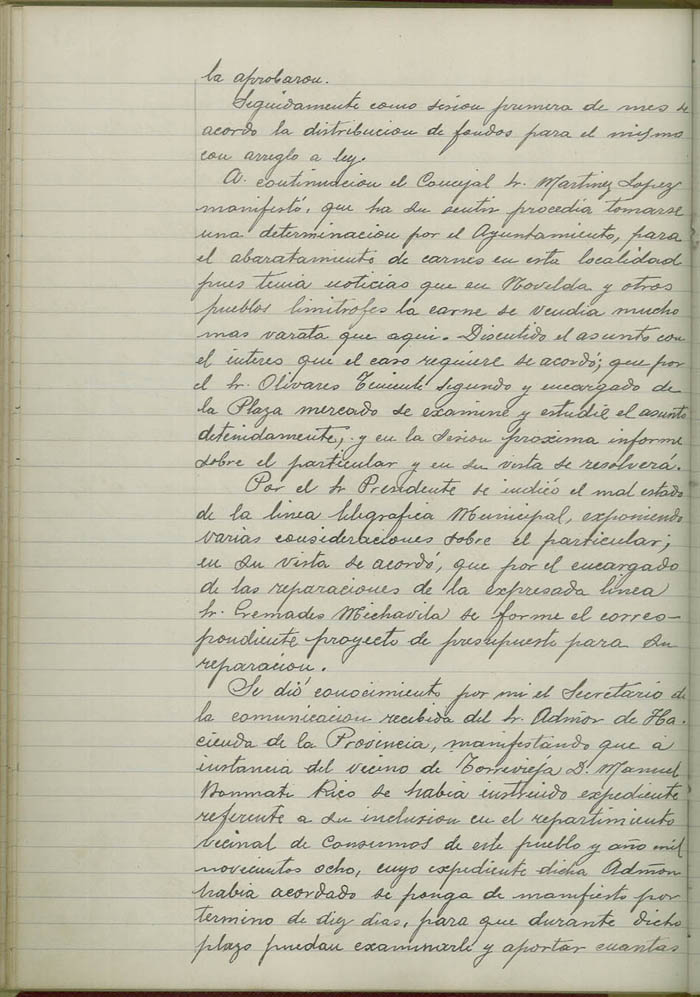 la aprobaron.
Seguidamente como sesion primera de mes se
acordo la distribucion de fondos para el mismo
con arreglo a ley.
A continuacion el Concejal Sr. Martinez Lopez
manifestó, que ha su sentir procedia tomarse
una determinacion por el Ayuntamiento, para
el abaratamiento de carnes en esta localidad
pues tenia noticias que en Novelda y otros
pueblos limitrofes la carne se vendia mucho
mas varata que aqui. Discutido el asunto con
el interes que el caso requiere se acordó; que por
el Sr. Olivares Teniente segundo y encargado de
la Plaza mercado se examine y estudie el asunto
detenidamente, y en la sesion proxima informe
sobre el particular y en su vista se resolverá.
Por el Sr Presidente se indicó el mal estado
de la linea telegrafica Municipal, exponiendo
varias consideraciones sobre el particular;
en su vista se acordó, que por el encargado
de las reparaciones de la expresada linea
Sr. Cremades Michavila se forme el corres-
pondiente proyecto de presupuesto para su
reparacion.
Se dió conocimiento por mi el Secretario de
la comunicacion recibida del Sr. Admor de Ha-
cienda de la Provincia, manifestando que á
instancia del vecino de Torrevieja D. Manuel
Bonmati Rico se habia instruido expediente
referente a su inclusion en el repartimiento
vecinal de consumos de este pueblo y año mil
novecientos ocho, cuyo expediente dicha Admon
habia acordado se ponga de manifiesto por
termino de diez dias, para que durante dicho
plazo puedan examinarle y aportar cuantas